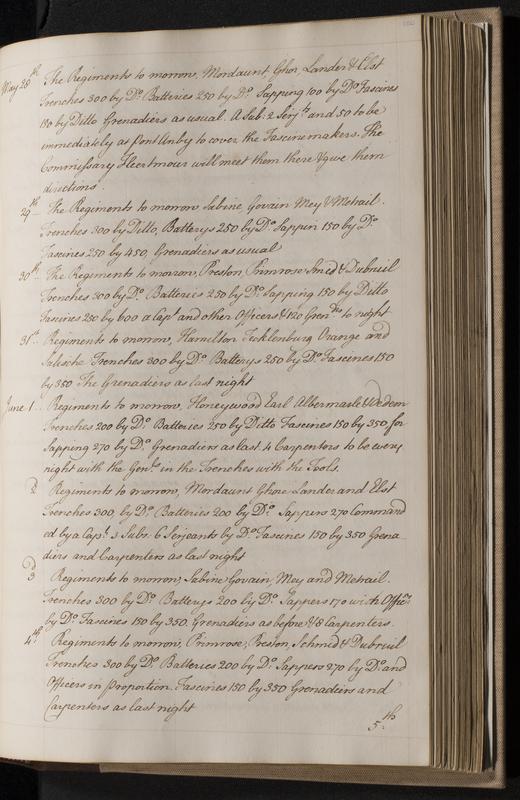 May 28th The Regiments to morrow, Mordaunt Ghor Lander & Elst
Trenches 300 by Do. Batteries 250 by Do. Sapping 100 by Do. Fascines
150 by Ditto Grenadiers as usual. A Sub: 2 Serjts and 50 to be
immediately at Pont Anby to cover the Fascine makers. The
Commissary Heertmour will meet them there & give them
directions
29th The Regiments to morrow Sabine, Govain Mey & Metrail.
Trenches 300 by Ditto, Batterys 250 by Do. Sappin 150 by Do.
Fascines 250 by 450, Grenadiers as usual
30th The Regiments to morow, Preston, Primrose Smid & Dubruil
Trenches 300 by Do. Batteries 250 by Do. Sapping 150 by Ditto
Fascines 250 by 600 a Capt and other Officers & 120 Grenrs to night
31st Regiments to morrow, Hamilton Tecklenburg Orange and
Salische. Trenches 300 by Do. Batterys 250 by Do. Fascines 150
by 350 The Grenadiers as last night
June 1 Regiments to morrow, Honeywood Earl Albermarle & Wedem
Trenches 200 by Do. Batteries 250 by Ditto Fascines 150 by 350, for
Sapping 270 by Do. Grenadiers as last. 4 Carpentors to be every
night with the Genl. in the Trenches with the Tools.
2 Regiments to morrow, Mordaunt Ghore Lander and Elst
Trenches 300, by Do. Batteries 200 by Do. Sappers 270 Command
ed by a Capt. 3 Subs. 6 Serjeants by Do. Fascines 150 by 350 Grena
diers and Carpenters as last night
3d Regiments to morrow, Sabine Govain, Mey and Metrail.
Trenches 300 by Do. Batterys 200 by Do. Sappers 170 with Officrs
by Do. Fascines 150 by 350, Grenadiers as before & 8 Carpenters.
4th Regiments to morrow, Primrose, Preston, Schmid & Dubruil
Trenches 300 by Do. Batteries 200 by Do. Sappers 270 by Do. and
Officers in Proportion. Fascines 150 by 350 Grenadeirs and
Carpenters as last night
5th